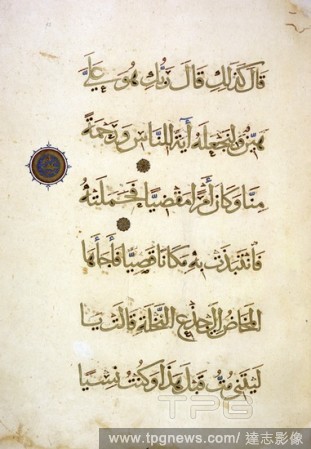 قال كذلك قال ربك هو علي
هين ولنجعله آية للناس ورحمة
منا وكان أمرا مقضيا فحملته
فانتبذت به مكانا قصيا فأجاءها
المخاض إلى جذع النخلة قالت يا
ليتني مت قبل هذا وكنت نسيا
TPG
www.tpgnews.com / 達志影像